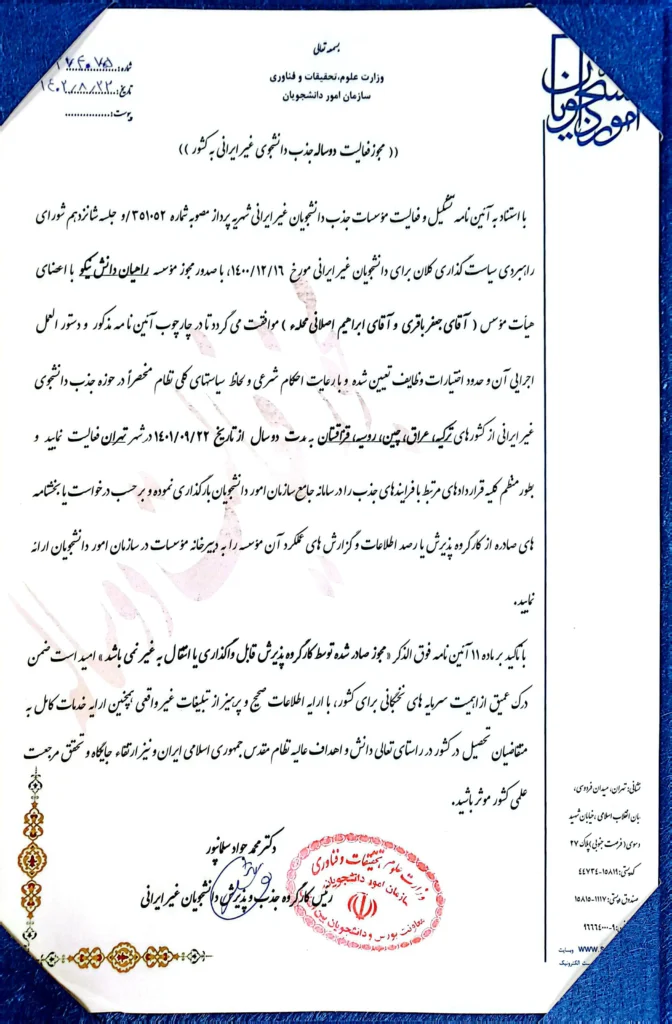 بسمه تعالی
وزارت علوم، تحقیقات و فناوری
سازمان امور دانشجویان
شماره:
تاریخ: ۱۴۰۲/۸/۲۲
پیوست:
سازمان امور دانشجویان
(( مجوز فعالیت دوساله جذب دانشجوی غیر ایرانی به کشور ))
با استناد به آئین نامه تشکیل و فعالیت مؤسسات جذب دانشجویان غیر ایرانی شهریه پرداز مصوبه شماره ۳۵۱۰۵۲/و جلسه شانزدهم شورای
راهبردی سیاست گذاری کلان برای دانشجویان غیر ایرانی مورخ ۱۴۰۰/۱۲/۱۶، با صدور مجوز مؤسسه راهیان دانش نیکو با اعضای
هیأت مؤسس ( آقای جعفر باقری و آقای ابراهیم اصلانی محله ) موافقت می گردد تا در چارچوب آئین نامه مذکور و دستور العمل
اجرایی آن و حدود اختیارات وظایف تعیین شده و با رعایت احکام شرعی و لحاظ سیاستهای کلی نظام منحصراً در حوزه جذب دانشجوی
غیر ایرانی از کشورهای ترکیه، عراق، چین، روسیه، قزاقستان به مدت دو سال از تاریخ ۱۴۰۱/۰۹/۲۲ در شهر تهران فعالیت نمایید و
بطور منظم کلیه قراردادهای مرتبط با فرایندهای جذب را در سامانه جامع سازمان امور دانشجویان بارگذاری نموده و بر حسب درخواست یا بخشنامه
های صادره از کارگروه پذیرش یا رصد اطلاعات و گزارش های عملکرد آن مؤسسه را به دبیرخانه مؤسسات در سازمان امور دانشجویان ارائه
نمایید.
با تاکید بر ماده ۱۱ آئین نامه فوق الذکر «مجوز صادر شده توسط کارگروه پذیرش قابل واگذاری یا انتقال به غیر نمی باشد» امید است ضمن
درک عمیق از اهمیت سرمایه های نخبگانی برای کشور، با ارایه اطلاعات صحیح و پرهیز از تبلیغات غیر واقعی همچنین ارایه خدمات کامل به
متقاضیان تحصیل در کشور در راستای تعالی دانش و اهداف عالیه نظام مقدس جمهوری اسلامی ایران و نیز ارتقاء جایگاه و تحقق مرجعیت
علمی کشور موثر باشید.
دکتر محمد جواد سلمانپور
رئیس کارگروه جذب و پذیرش دانشجویان غیر ایرانی
وزارت علوم تحقیقات و فناوری
سازمان امور دانشجویان
معاونت بورس و دانشجویان بین
نشانی: تهران، میدان فردوسی،
بان انقلاب اسلامی، خیابان شهید
وسوی (فرصت جنوبی) پلاک ۲۷
کدپستی: ۱۵۸۱۹-۴۴۷۳۴
صندوق پستی: ۱۱۱۷-۱۵۸۱۵
وبسایت www.
ست الکترونیک